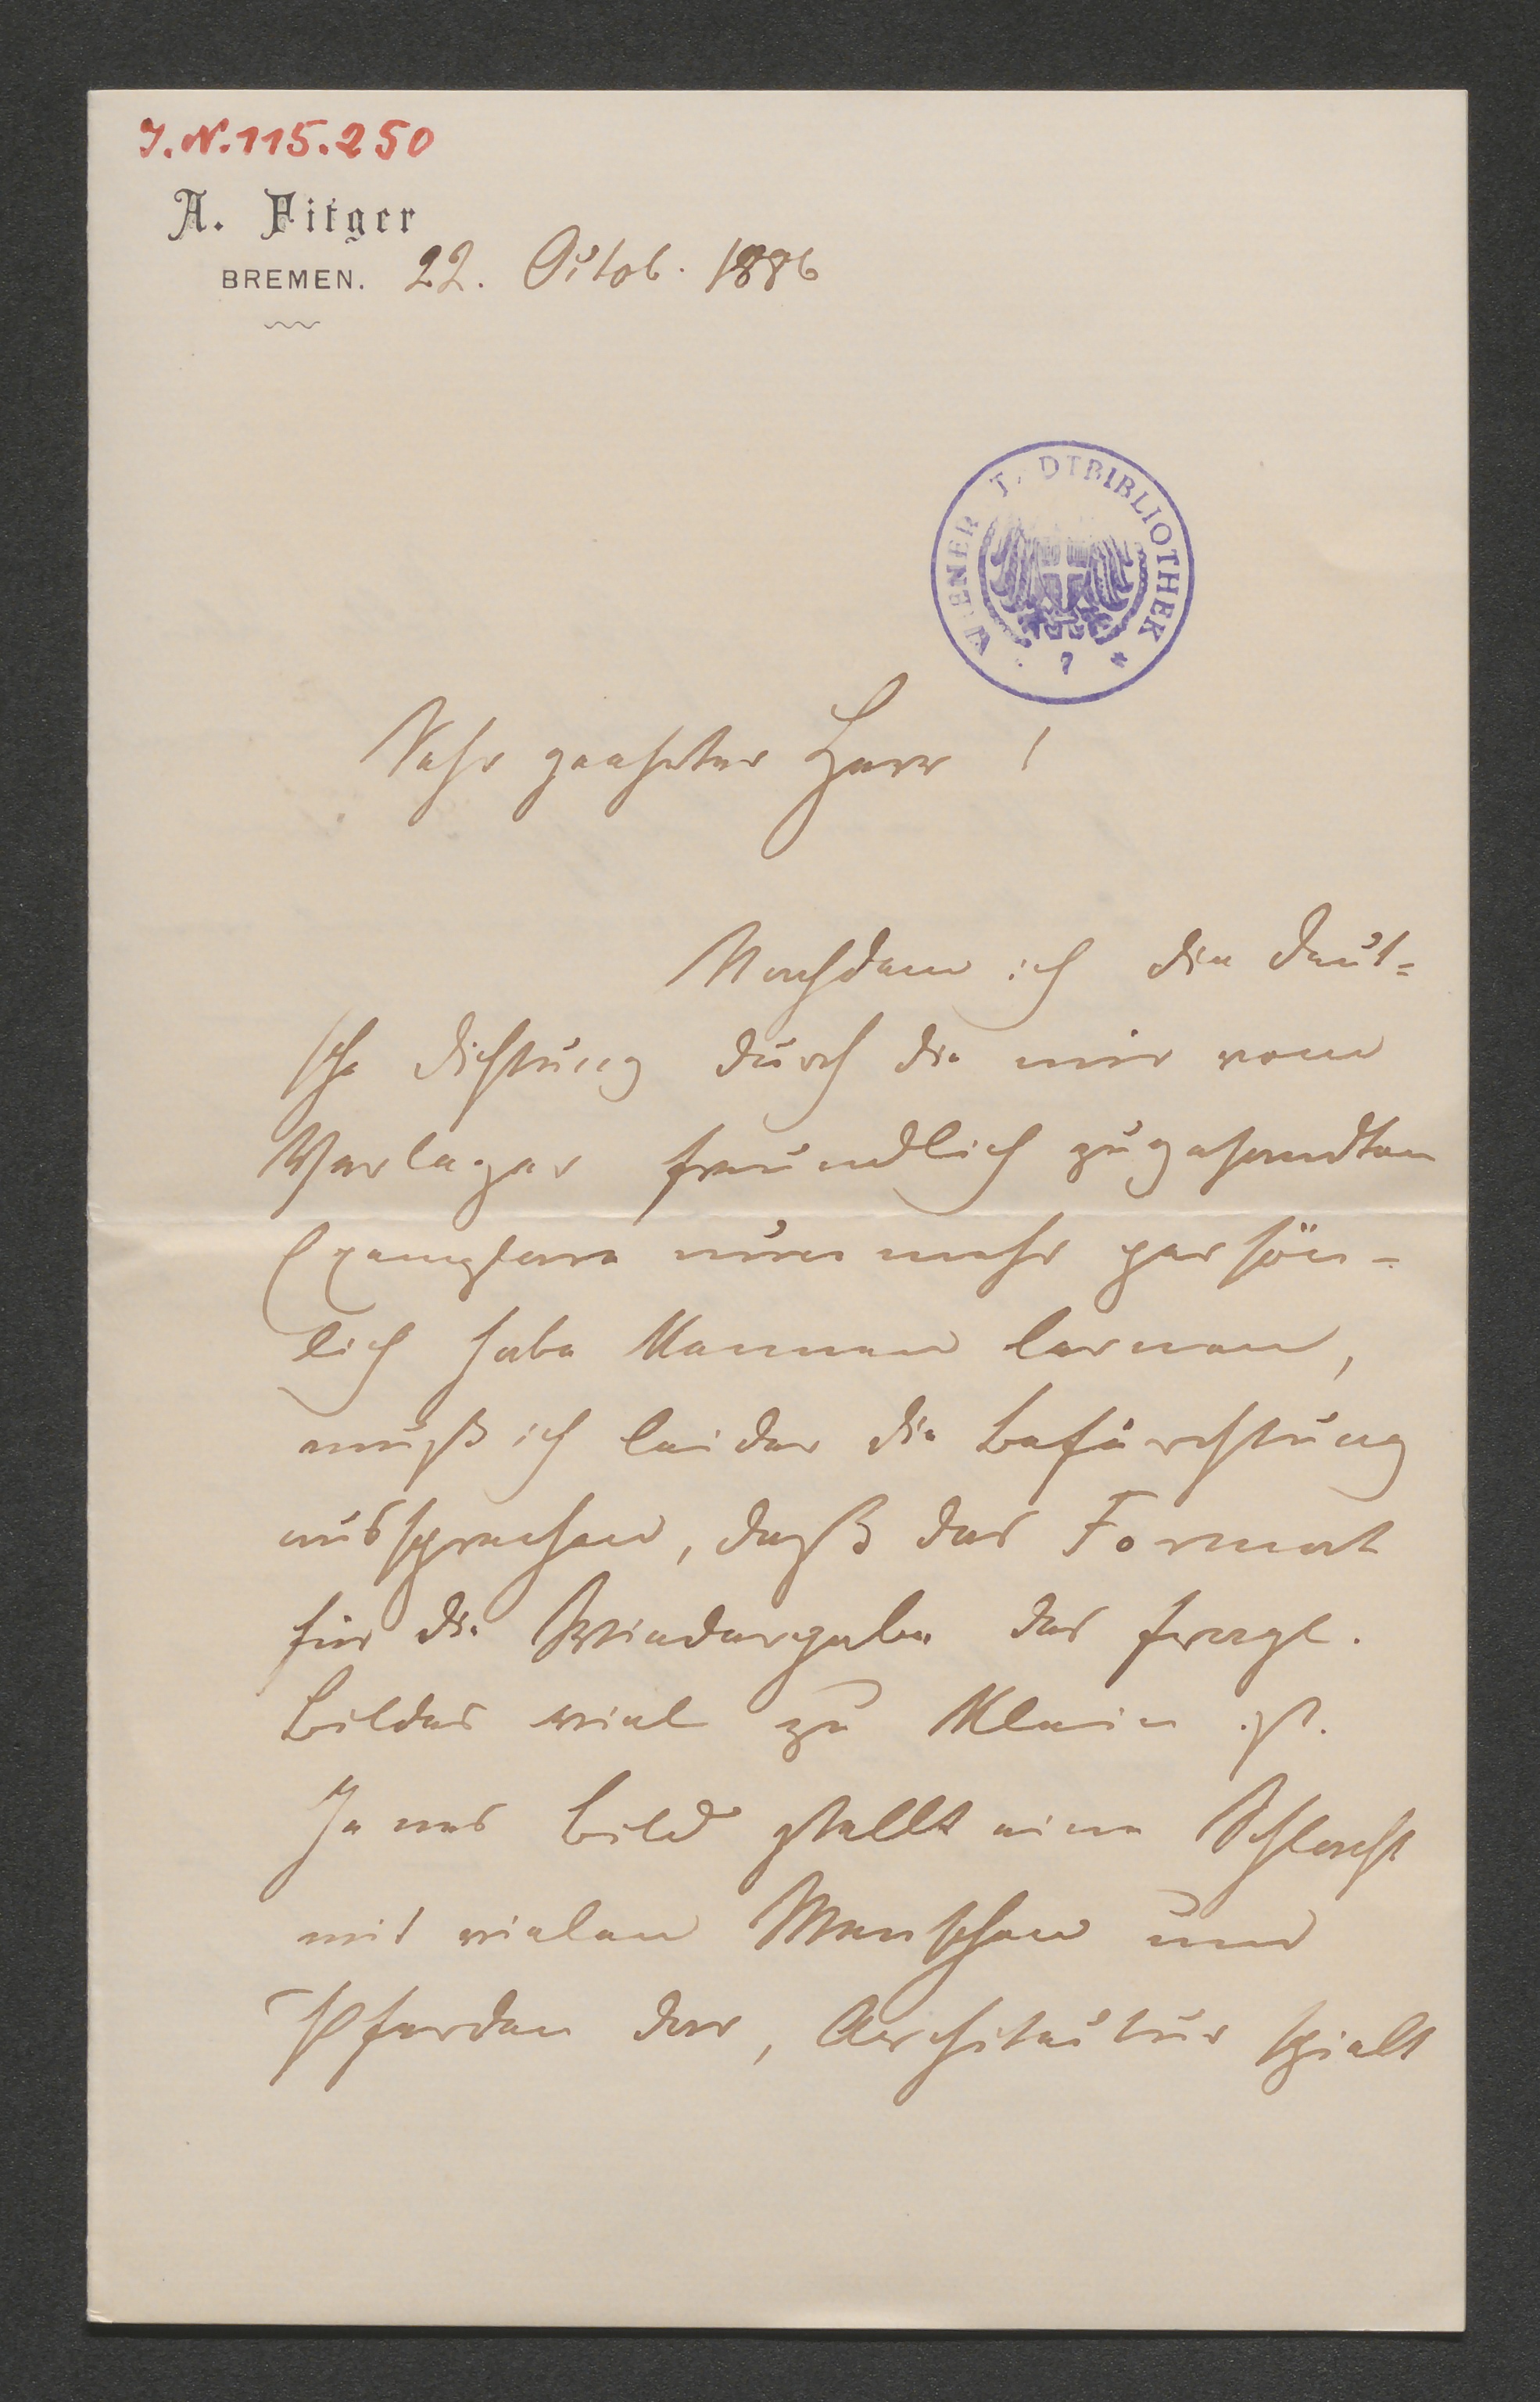 J.N. 115.250
A. Fitger
BREMEN. 22. Octob. 1886
WIENER STADTBIBLIOTHEK
Sehr geehrter Herr !
Nachdem ich die deut=
sche Dichtung durch die mir vom
Verleger freundlich zugesandten
Exemplare nunmehr persön=
lich habe kennen lernen,
muß ich leider die Befürchtung
aussprechen, daß das Format
für die Wiedergabe des fragl.
Bildes viel zu klein ist.
Jenes Bild stellt eine Schlacht
mit vielen Menschen und
Pferden dar, Architectur spielt